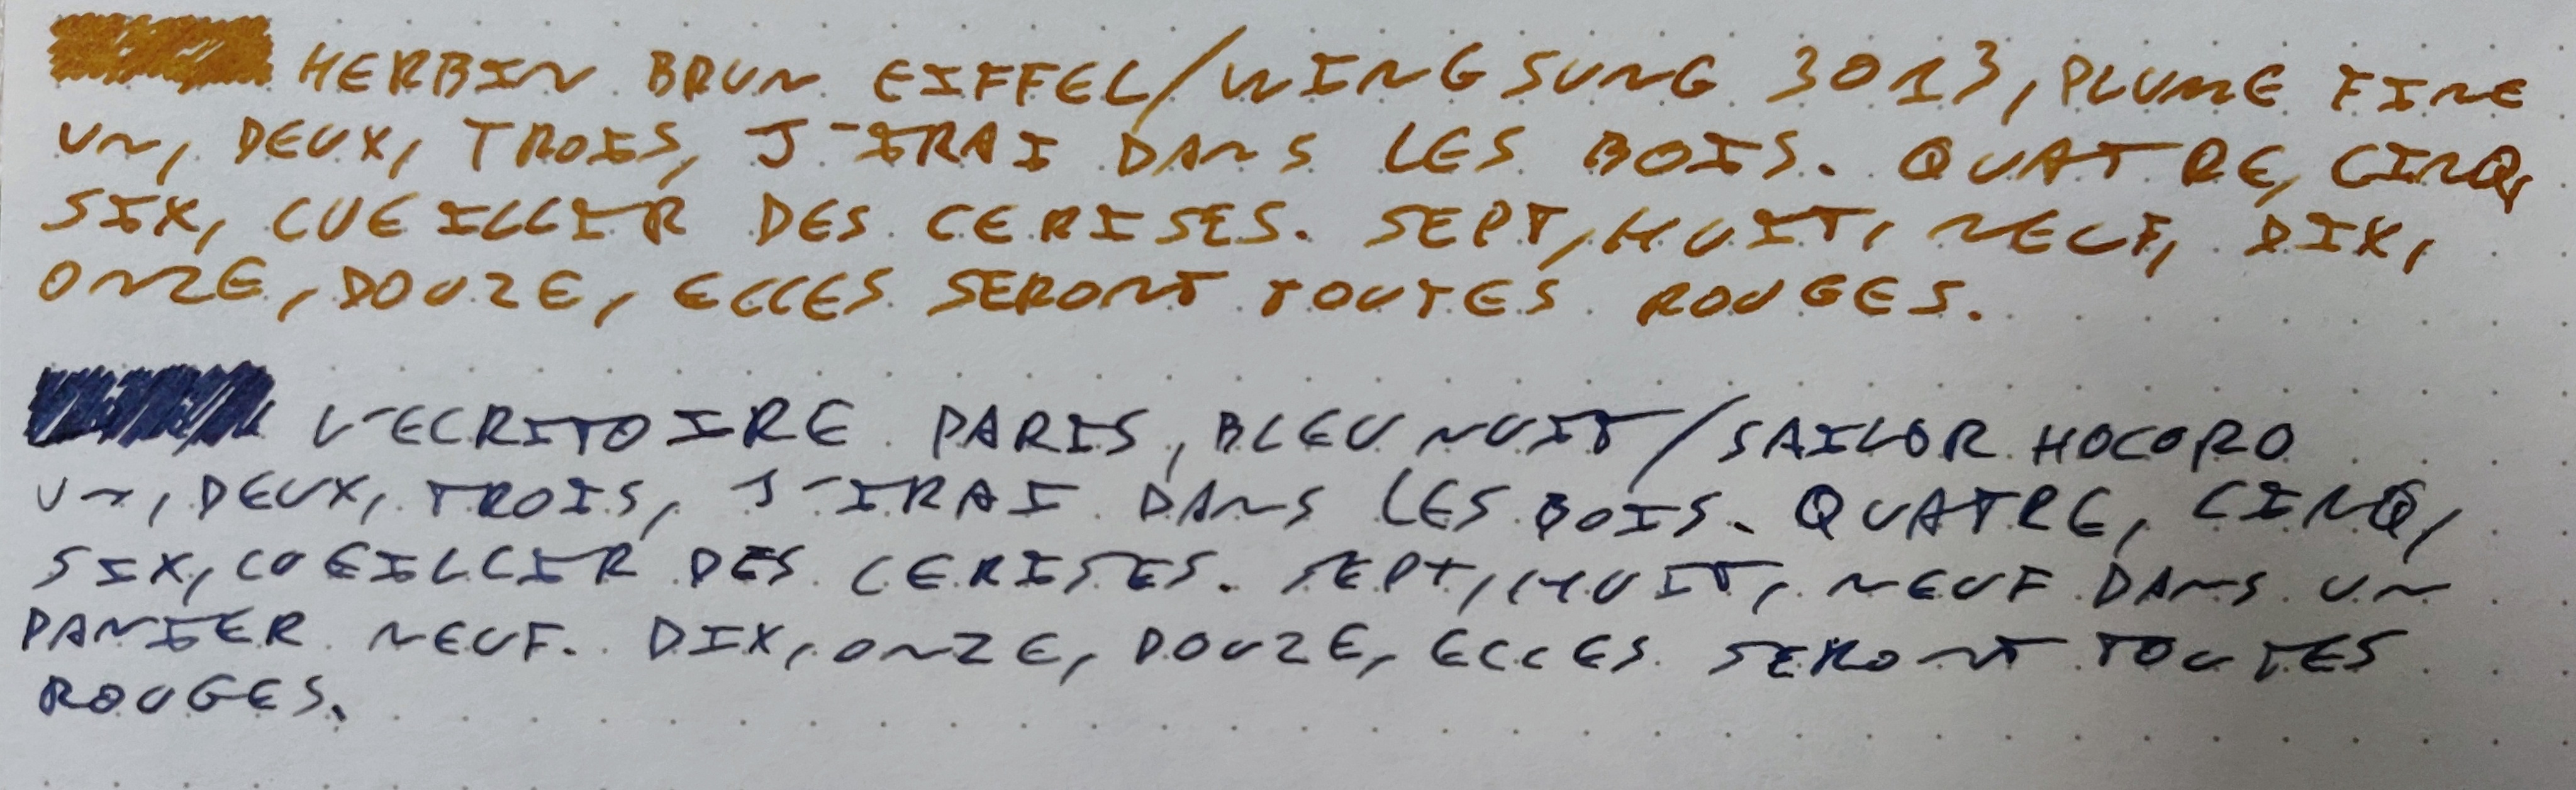 HERBIN BRUN EIFFEL/WINGSUNG 3013, PLUME FINE
UN, DEUX, TROIS, J'IRAI DANS LES BOIS. QUATRE, CINQ,
SIX, CUEILLIR DES CERISES. SEPT, HUIT, NEUF, DIX,
ONZE, DOUZE, ELLES SERONT TOUTES ROUGES.
L'ECRITOIRE PARIS, BLEU NUIT/SAILOR HOCORO
UN, DEUX, TROIS, J'IRAI DANS LES BOIS. QUATRE, CINQ,
SIX, CUEILLIR DES CERISES. SEPT, HUIT, NEUF DANS UN
PANIER NEUF. DIX, ONZE, DOUZE, ELLES SERONT TOUTES
ROUGES.